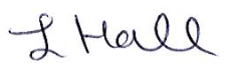 L Hall